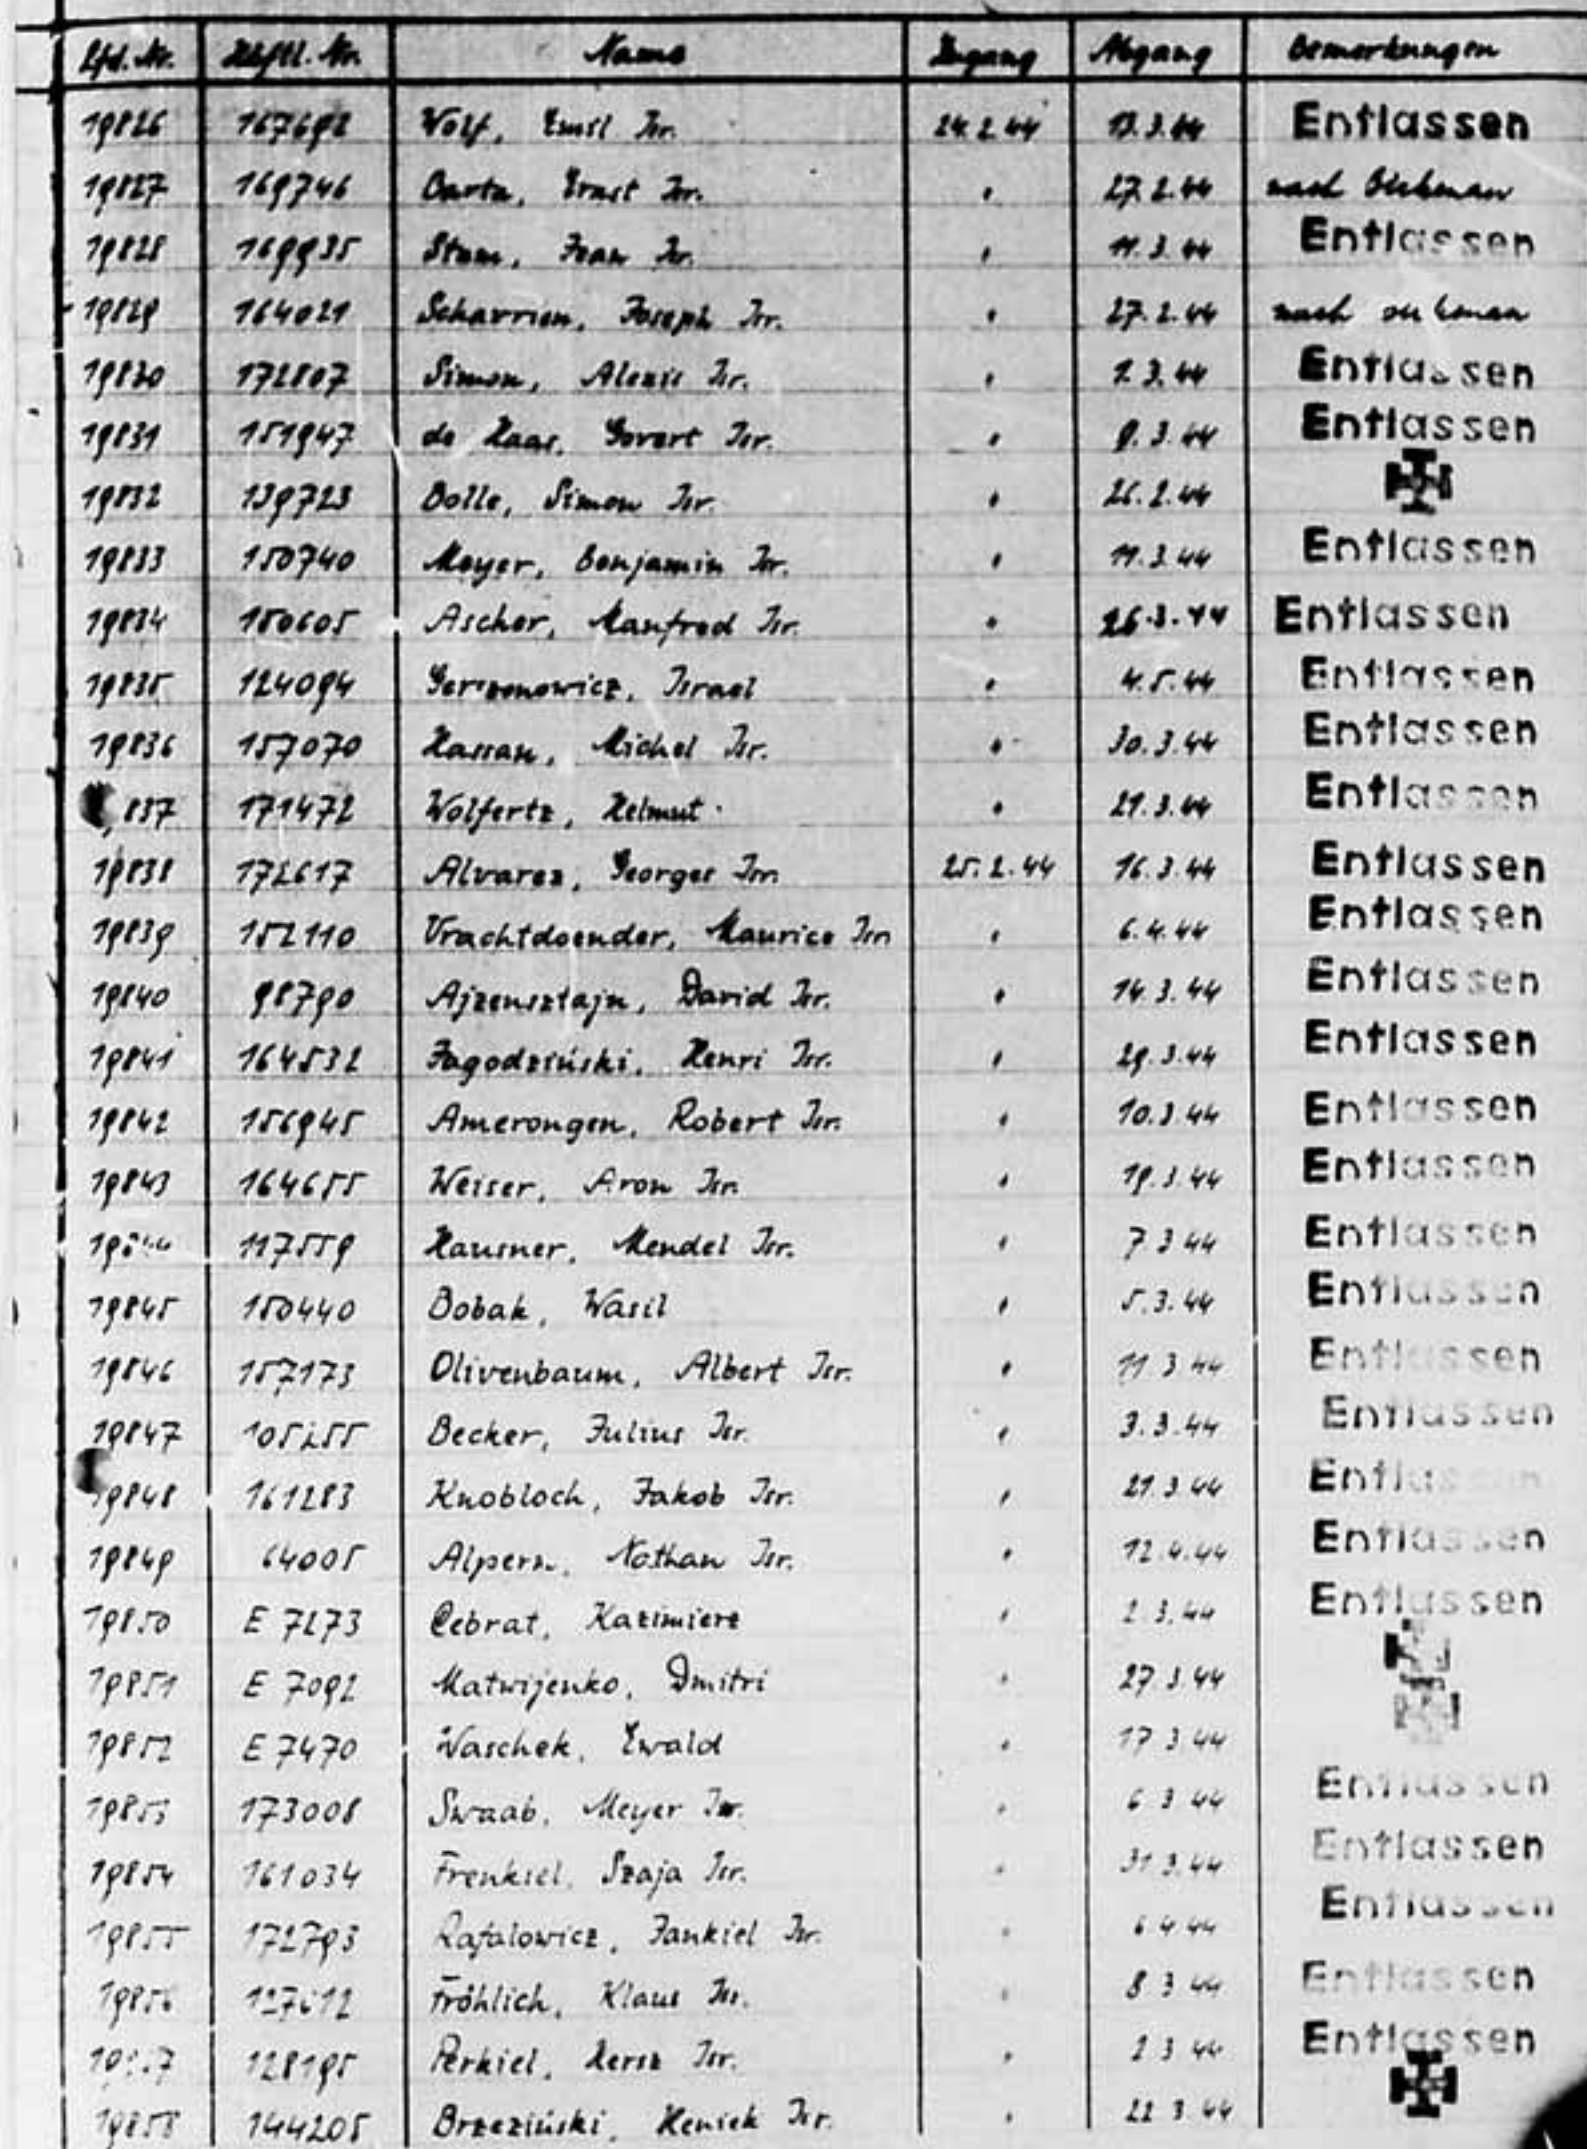 Lfd. Nr. Häftl. Nr. Name Zugang Abgang Bemerkungen
19826 167692 Wolf, Emil Isr. 24.2.44 13.3.44 Entlassen
19827 169746 Isr. " 27.2.44 nach Birkenau
19828 169935 Jean Isr. " 11.3.44 Entlassen
19829 164021 Scharrien, Joseph Isr. " 27.2.44 nach
19830 172807 Simon, Alexis Isr. " 1.3.44 Entlassen
19831 151947 de Haas, Govert Isr. " 9.3.44 Entlassen
19832 139723 Bolle, Simon Isr. " 26.2.44
19833 150740 Meyer, Benjamin Isr. " 11.3.44 Entlassen
19834 150605 Ascher, Manfred Isr. " 26.3.44 Entlassen
19835 124094 Gerzonowicz, Israel " 4.5.44 Entlassen
19836 157070 Hassan, Michel Isr. " 30.3.44 Entlassen
837 171472 Wolfertz, Helmut " 21.3.44 Entlassen
19838 172617 Alvarez, Georges Isr. 25.2.44 16.3.44 Entlassen
19839 152110 Vrachtdoender, Maurice Isr. " 6.4.44 Entlassen
19840 98790 Ajzensztajn, David Isr. " 14.3.44 Entlassen
19841 164532 Jagodziński, Henri Isr. " 29.3.44 Entlassen
19842 156945 Amerongen, Robert Isr. " 10.3.44 Entlassen
19843 164655 Weiser, Aron Isr. " 19.3.44 Entlassen
19844 117559 Hausner, Mendel Isr. " 7.3.44 Entlassen
19845 150440 Bobak, Wasil " 5.3.44 Entlassen
19846 157173 Olivenbaum, Albert Isr. " 11.3.44 Entlassen
19847 105255 Becker, Julius Isr. " 3.3.44 Entlassen
19848 161283 Knobloch, Jakob Isr. " 21.3.44 Entlassen
19849 64005 Alpern, Nathan Isr. " 12.4.44 Entlassen
19850 E 7273 Cebrat, Kazimierz " 2.3.44 Entlassen
19851 E 7092 Matwijenko, Dmitri " 27.3.44
19852 E 7470 Waschek, Ewald " 17.3.44
19853 173008 Swaab, Meyer Isr. " 6.3.44 Entlassen
19854 161034 Frenkiel, Szaja Isr. " 31.3.44 Entlassen
19855 172793 Rafalowicz, Jankiel Isr. " 6.4.44 Entlassen
19856 127612 Fröhlich, Klaus Isr. " 8.3.44 Entlassen
19857 128195 Perkiel, Hersz Isr. " 2.3.44 Entlassen
19858 144205 Brzeziński, Heniek Isr. " 22.3.44